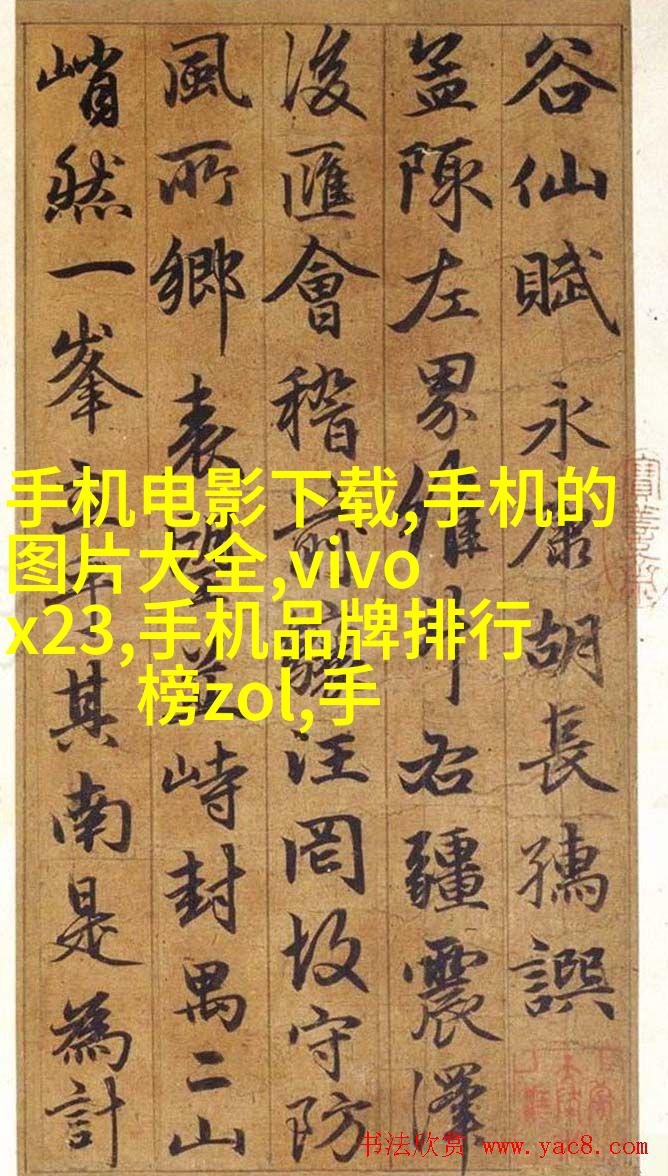 谷仙賦 永康胡長孺譔
盖陳左界維右疆震澤
後匯會稽前汪罔故守防
風所鄉表望並峙封禺二山
峭然一峯立于其南是為計
手机电影下载,手机的
图片大全,vivo
x23,手机品牌排行
榜zol,手
书法欣赏 www.yac8.com